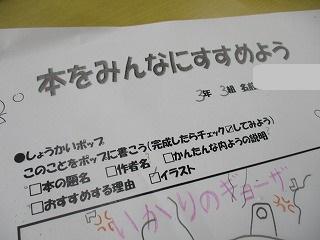 本をみんなにすすめよう
3年 3組 名前
●しょうかいポップ
このことをポップに書こう(完成したらチェック☑してみよう)
□本の題名 □作者名 □かんたんな内ようの説明
□おすすめする理由 ☑イラスト
いかりのギョーザ